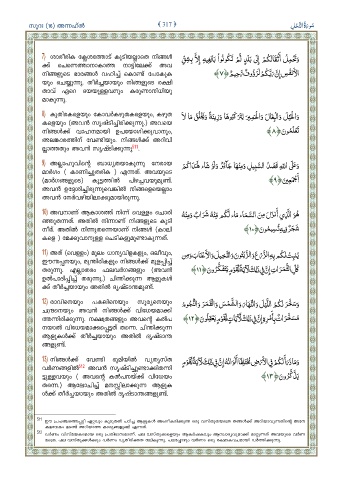 സൂറഃ (16) അന്നഹ്ൽ
317
7) ശാരീരിക ക്ലേശത്തോട് കൂടിയല്ലാതെ നിങ്ങൾ
ക്ക് ചെന്നെത്താനാകാത്ത നാട്ടിലേക്ക് അവ
നിങ്ങളുടെ ഭാരങ്ങൾ വഹിച്ച് കൊണ്ട് പോകുക
യും ചെയ്യുന്നു. തീർച്ചയായും നിങ്ങളുടെ രക്ഷി
താവ് ഏറെ ദയയുള്ളവനും കരുണാനിധിയു
മാകുന്നു.
وَتَحْمِلُ أَثْقَالَكُمْ إِلَىٰ بَلَدٍ لَّمْ تَكُونُوا بَالِغِيهِ إِلَّا بِشِقِّ
الْأَنفُسِ إِنَّ رَبَّكُمْ لَرَءُوفٌ رَّحِيمٌ ﴿٧﴾
8) കുതിരകളെയും കോവർകഴുതകളെയും, കഴുത
കളെയും (അവൻ സൃഷ്ടിച്ചിരിക്കുന്നു.) അവയെ
നിങ്ങൾക്ക് വാഹനമായി ഉപയോഗിക്കുവാനും,
അലങ്കാരത്തിന് വേണ്ടിയും. നിങ്ങൾക്ക് അറിവി
ല്ലാത്തതും അവൻ സൃഷ്ടിക്കുന്നു.
وَالْخَيْلَ وَالْبِغَالَ وَالْحَمِيرَ لِتَرْكَبُوهَا وَزِينَةً وَيَخْلُقُ مَا لَا
تَعْلَمُونَ ﴿٨﴾
9) അല്ലാഹുവിന്റെ ബാധ്യതയാകുന്നു നേരായ
മാർഗം (കാണിച്ചുതരിക) എന്നത്. അവയുടെ
(മാർഗങ്ങളുടെ) കൂട്ടത്തിൽ പിഴച്ചവയുമുണ്ട്.
അവൻ ഉദ്ദേശിച്ചിരുന്നുവെങ്കിൽ നിങ്ങളെയെല്ലാം
അവൻ നേർവഴിയിലാക്കുമായിരുന്നു.
وَعَلَى اللَّهِ قَصْدُ السَّبِيلِ وَمِنْهَا جَائِرٌ وَلَوْ شَاءَ لَهَدَاكُمْ
أَجْمَعِينَ ﴿٩﴾
10) അവനാണ് ആകാശത്ത് നിന്ന് വെള്ളം ചൊരി
ഞ്ഞുതന്നത്. അതിൽ നിന്നാണ് നിങ്ങളുടെ കുടി
നീർ. അതിൽ നിന്നുതന്നെയാണ് നിങ്ങൾ (കാലി
കളെ ) മേക്കുവാനുള്ള ചെടികളുമുണ്ടാകുന്നത്.
هُوَ الَّذِي أَنزَلَ مِنَ السَّمَاءِ مَاءً لَّكُم مِّنْهُ شَرَابٌ وَمِنْهُ
شَجَرٌ فِيهِ تُسِيمُونَ ﴿١٠﴾
11) അത് (വെള്ളം) മൂലം ധാന്യവിളകളും, ഒലീവും,
ഈന്തപ്പനയും, മുന്തിരികളും നിങ്ങൾക്ക് മുളപ്പിച്ച്
തരുന്നു. എല്ലാതരം ഫലവർഗങ്ങളും (അവൻ
ഉൽപാദിപ്പിച്ച് തരുന്നു.) ചിന്തിക്കുന്ന ആളുകൾ
ക്ക് തീർച്ചയായും അതിൽ ദൃഷ്ടാന്തമുണ്ട്.
يُنبِتُ لَكُم بِهِ الزَّرْعَ وَالزَّيْتُونَ وَالنَّخِيلَ وَالْأَعْنَابَ وَمِن
كُلِّ الثَّمَرَاتِ إِنَّ فِي ذَٰلِكَ لَآيَةً لِّقَوْمٍ يَتَفَكَّرُونَ ﴿١١﴾
12) രാവിനെയും പകലിനെയും സൂര്യനെയും
ചന്ദ്രനെയും അവൻ നിങ്ങൾക്ക് വിധേയമാക്കി
തന്നിരിക്കുന്നു. നക്ഷത്രങ്ങളും അവന്റെ കൽപ
നയാൽ വിധേയമാക്കപ്പെട്ടത് തന്നെ. ചിന്തിക്കുന്ന
ആളുകൾക്ക് തീർച്ചയായും അതിൽ ദൃഷ്ടാന്ത
ങ്ങളുണ്ട്.
وَسَخَّرَ لَكُمُ اللَّيْلَ وَالنَّهَارَ وَالشَّمْسَ وَالْقَمَرَ وَالنُّجُومُ
مُسَخَّرَاتٌ بِأَمْرِهِ إِنَّ فِي ذَٰلِكَ لَآيَاتٍ لِّقَوْمٍ يَعْقِلُونَ ﴿١٢﴾
13) നിങ്ങൾക്ക് വേണ്ടി ഭൂമിയിൽ വ്യത്യസ്ത
വർണങ്ങളിൽ അവൻ സൃഷ്ടിച്ചുണ്ടാക്കിത്തന്നി
ട്ടുള്ളവയും ( അവന്റെ കൽപനയ്ക്ക് വിധേയം
തന്നെ.) ആലോചിച്ച് മനസ്സിലാക്കുന്ന ആളുക
ൾക്ക് തീർച്ചയായും അതിൽ ദൃഷ്ടാന്തങ്ങളുണ്ട്.
وَمَا ذَرَأَ لَكُمْ فِي الْأَرْضِ مُخْتَلِفًا أَلْوَانُهُ إِنَّ فِي ذَٰلِكَ لَآيَةً لِّقَوْمٍ
يَذَّكَّرُونَ ﴿١٣﴾